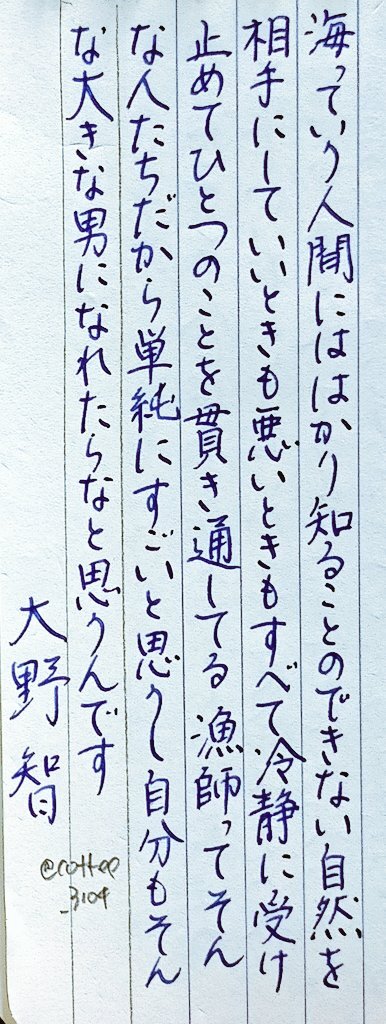 海っていう人間にははかり知ることのできない自然を
相手にしていいときも悪いときもすべて冷静に受け
止めてひとつのことを貫き通してる漁師ってそん
な人たちだから単純にすごいと思うし自分もそん
な大きな男になれたらなと思うんです
大野智
@cotton
_3104